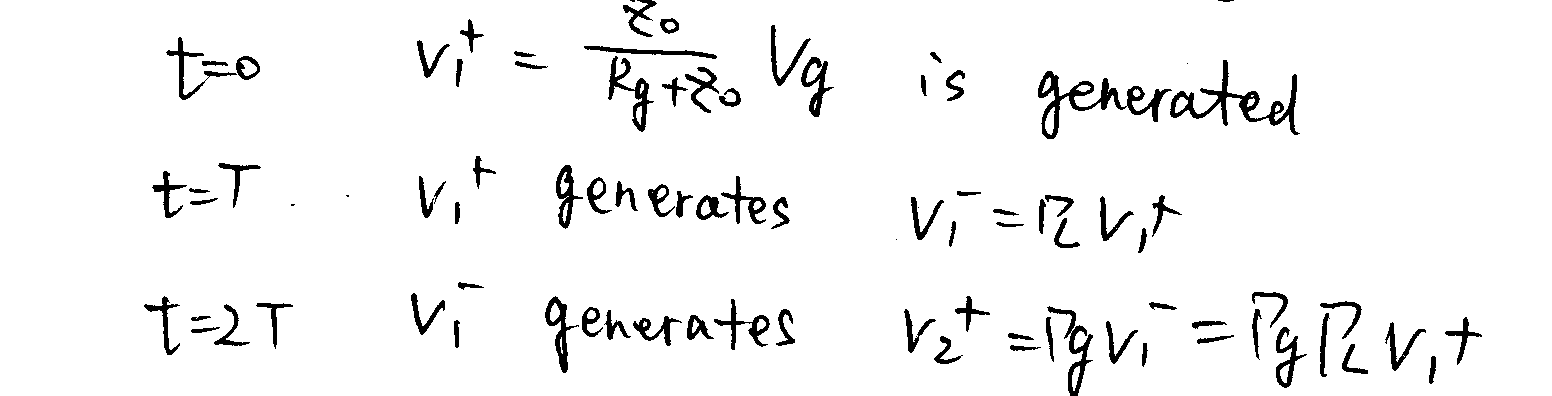 t=0 V₁⁺ = Z₀/(Rg+Z₀) Vg is generated
t=T V₁⁺ generates V₁⁻ = Γ_L V₁⁺
t=2T V₁⁻ generates V₂⁺ = Γg V₁⁻ = Γg Γ_L V₁⁺